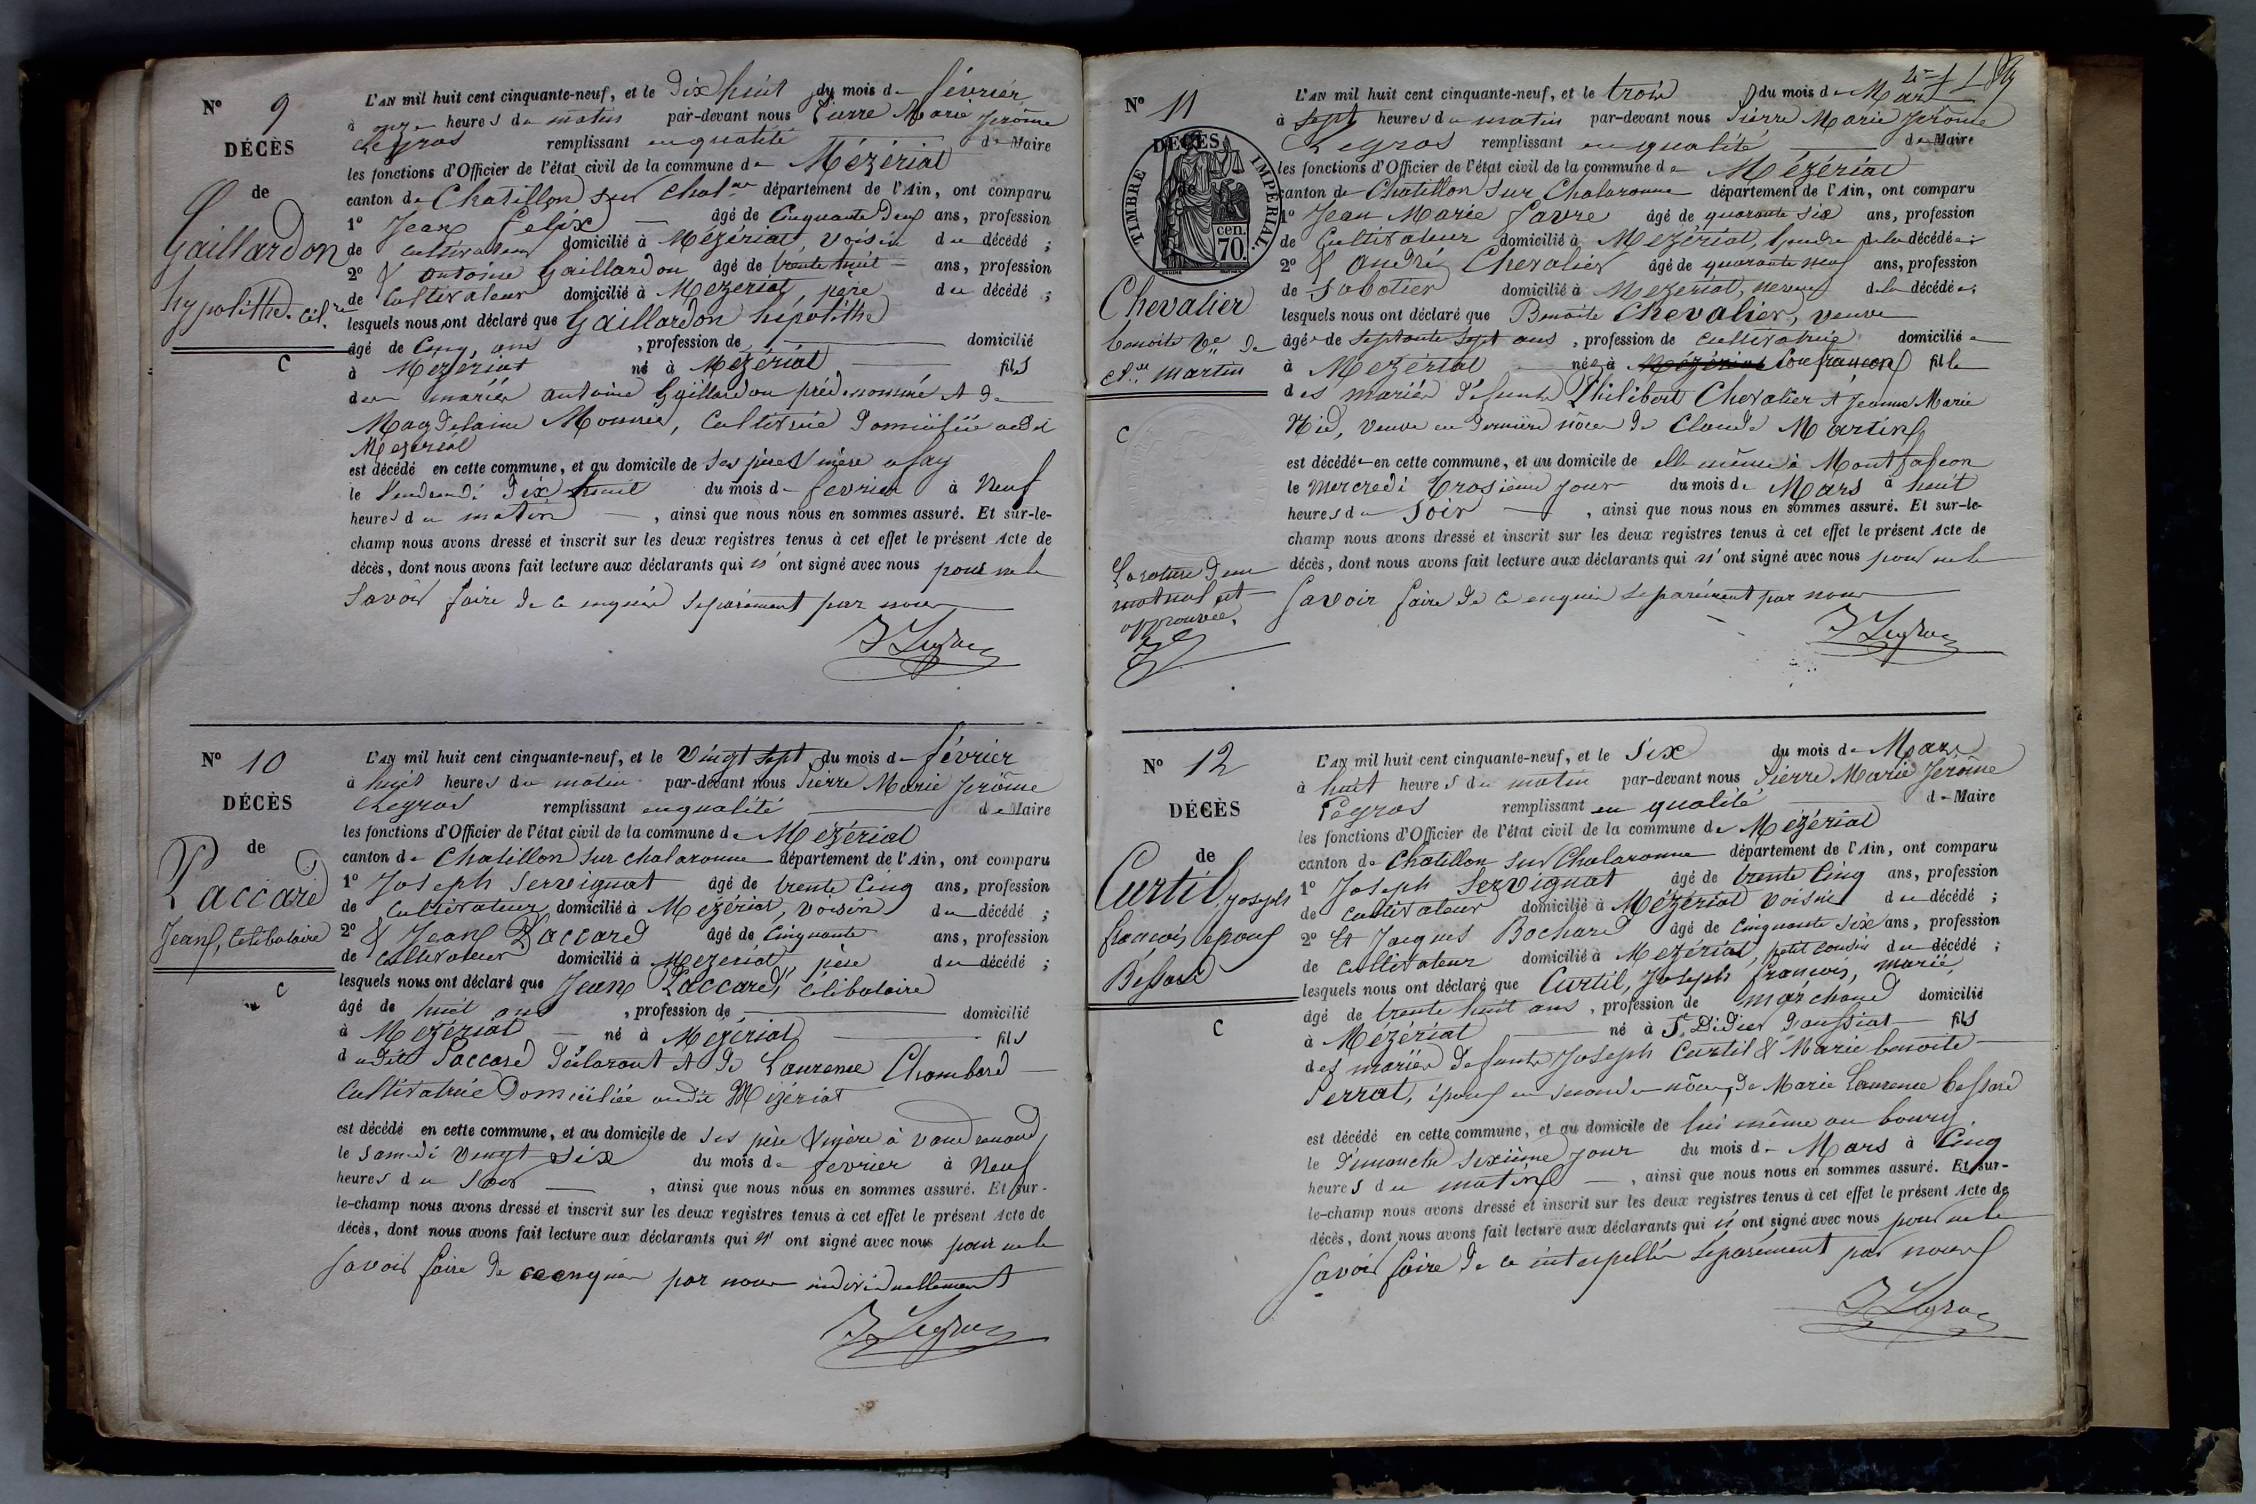 N° 9
DÉCÈS
de
Gaillardon
hypolithe. cél.re
C
L'AN mil huit cent cinquante-neuf, et le Dix huit du mois de février
à onze heures du matin par-devant nous Pierre Marie Jérôme
Legros remplissant en qualité de Maire
les fonctions d'Officier de l'état civil de la commune de Mézériat
canton de Chatillon sur Chal.ne département de l'Ain, ont comparu
1° Jean Felix âgé de Cinquante Deux ans, profession
de cultivateur domicilié à Mézériat, voisin du décédé ;
2° & antoine Gaillardon âgé de trente huit ans, profession
de Cultivateur domicilié à Mézériat, père du décédé ;
lesquels nous ont déclaré que Gaillardon hipolithe
âgé de Cinq ans , profession de domicilié
à Mézériat né à Mézériat fils
des mariés antoine Gaillardon prédénommé & de
Magdelaine Monnier, Cultivrice domiciliée audit
Mézériat
est décédé en cette commune, et au domicile de ses père & mère a fay
le Vendredi Dix huit du mois de février à Neuf
heures du matin , ainsi que nous nous en sommes assuré. Et sur-le-
champ nous avons dressé et inscrit sur les deux registres tenus à cet effet le présent Acte de
décès, dont nous avons fait lecture aux déclarants qui n'ont signé avec nous pour ne le
Savoir faire de ce enquis séparément par nous
J Legros
N° 10
DÉCÈS
de
Paccard
Jean, Célibataire
C
L'AN mil huit cent cinquante-neuf, et le Vingt sept du mois de février
à huit heures du matin par-devant nous Pierre Marie Jérôme
Legros remplissant en qualité de Maire
les fonctions d'Officier de l'état civil de la commune de Mézériat
canton de Chatillon sur chalaronne département de l'Ain, ont comparu
1° Joseph Servignat âgé de trente Cinq ans, profession
de Cultivateur domicilié à Mézériat, voisin du décédé ;
2° & Jean Paccard âgé de Cinquante ans, profession
de Cultivateur domicilié à Mézériat père du décédé ;
lesquels nous ont déclaré que Jean Paccard, célibataire
âgé de huit ans , profession de domicilié
à Mézériat né à Mézériat fils
dudit Paccard déclarant & de Laurence Chambard
Cultivatrice Domiciliée audit Mézériat
est décédé en cette commune, et au domicile de ses père & mère à
le Samedi Vingt Six du mois de février à Neuf
heures du Soir , ainsi que nous nous en sommes assuré. Et sur-
le-champ nous avons dressé et inscrit sur les deux registres tenus à cet effet le présent Acte de
décès, dont nous avons fait lecture aux déclarants qui n'ont signé avec nous pour ne le
savoir faire de ce enquis par nous individuellement
J Legros
N° 11
DÉCÈS
de
TIMBRE IMPÉRIAL.
cen. 70.
Chevalier
benoite Ve de
cl.de martin
C
La rature d'un
mot nul est
approuvée.
L'AN mil huit cent cinquante-neuf, et le trois du mois de Mars
à sept heures du matin par-devant nous Pierre Marie Jérôme
Legros remplissant en qualité de Maire
les fonctions d'Officier de l'état civil de la commune de Mézériat
canton de Chatillon sur Chalaronne département de l'Ain, ont comparu
1° Jean Marie Favre âgé de quarante Six ans, profession
de Cultivateur domicilié à Mézériat, Gendre de la décédée ;
2° & andré Chevalier âgé de quarante neuf ans, profession
de Sabotier domicilié à Mézériat, neveu de la décédée ;
lesquels nous ont déclaré que Benoite Chevalier, veuve
âgée de Septante Sept ans , profession de cultivatrice domiciliée
à Mézériat née à Mézériat Confrançon fille
des mariés défunts Philibert Chevalier & Jeanne Marie
Nid, Veuve en dernières nôces de Claude Martin
est décédée en cette commune, et au domicile de elle même à Montfalcon
le Mercredi troisième jour du mois de Mars à huit
heures du Soir , ainsi que nous nous en sommes assuré. Et sur-le-
champ nous avons dressé et inscrit sur les deux registres tenus à cet effet le présent Acte de
décès, dont nous avons fait lecture aux déclarants qui n'ont signé avec nous pour ne le
savoir faire de ce enquis séparément par nous
J Legros
N° 12
DÉCÈS
de
Curtil, Joseph
françois époux
Bessard
C
L'AN mil huit cent cinquante-neuf, et le Six du mois de Mars
à huit heures du matin par-devant nous Pierre Marie Jérôme
Legros remplissant en qualité de Maire
les fonctions d'Officier de l'état civil de la commune de Mézériat
canton de Chatillon sur Chalaronne département de l'Ain, ont comparu
1° Joseph Servignat âgé de trente Cinq ans, profession
de cultivateur domicilié à Mézériat voisin du décédé ;
2° Et Jacques Bochard âgé de Cinquante Six ans, profession
de cultivateur domicilié à Mézériat, petit cousin du décédé ;
lesquels nous ont déclaré que Curtil, Joseph françois, marié,
âgé de trente huit ans , profession de marchand domicilié
à Mézériat né à St. Didier d'aussiat fils
des mariés défunts Joseph Curtil & Marie benoite
Perrat, époux en secondes nôces de Marie Laurence bessard
est décédé en cette commune, et au domicile de lui même au bourg
le Dimanche sixième jour du mois de Mars à Cinq
heures du matin , ainsi que nous nous en sommes assuré. Et sur-
le-champ nous avons dressé et inscrit sur les deux registres tenus à cet effet le présent Acte de
décès, dont nous avons fait lecture aux déclarants qui n'ont signé avec nous pour ne le
savoir faire de ce interpellés séparément par nous
J Legros